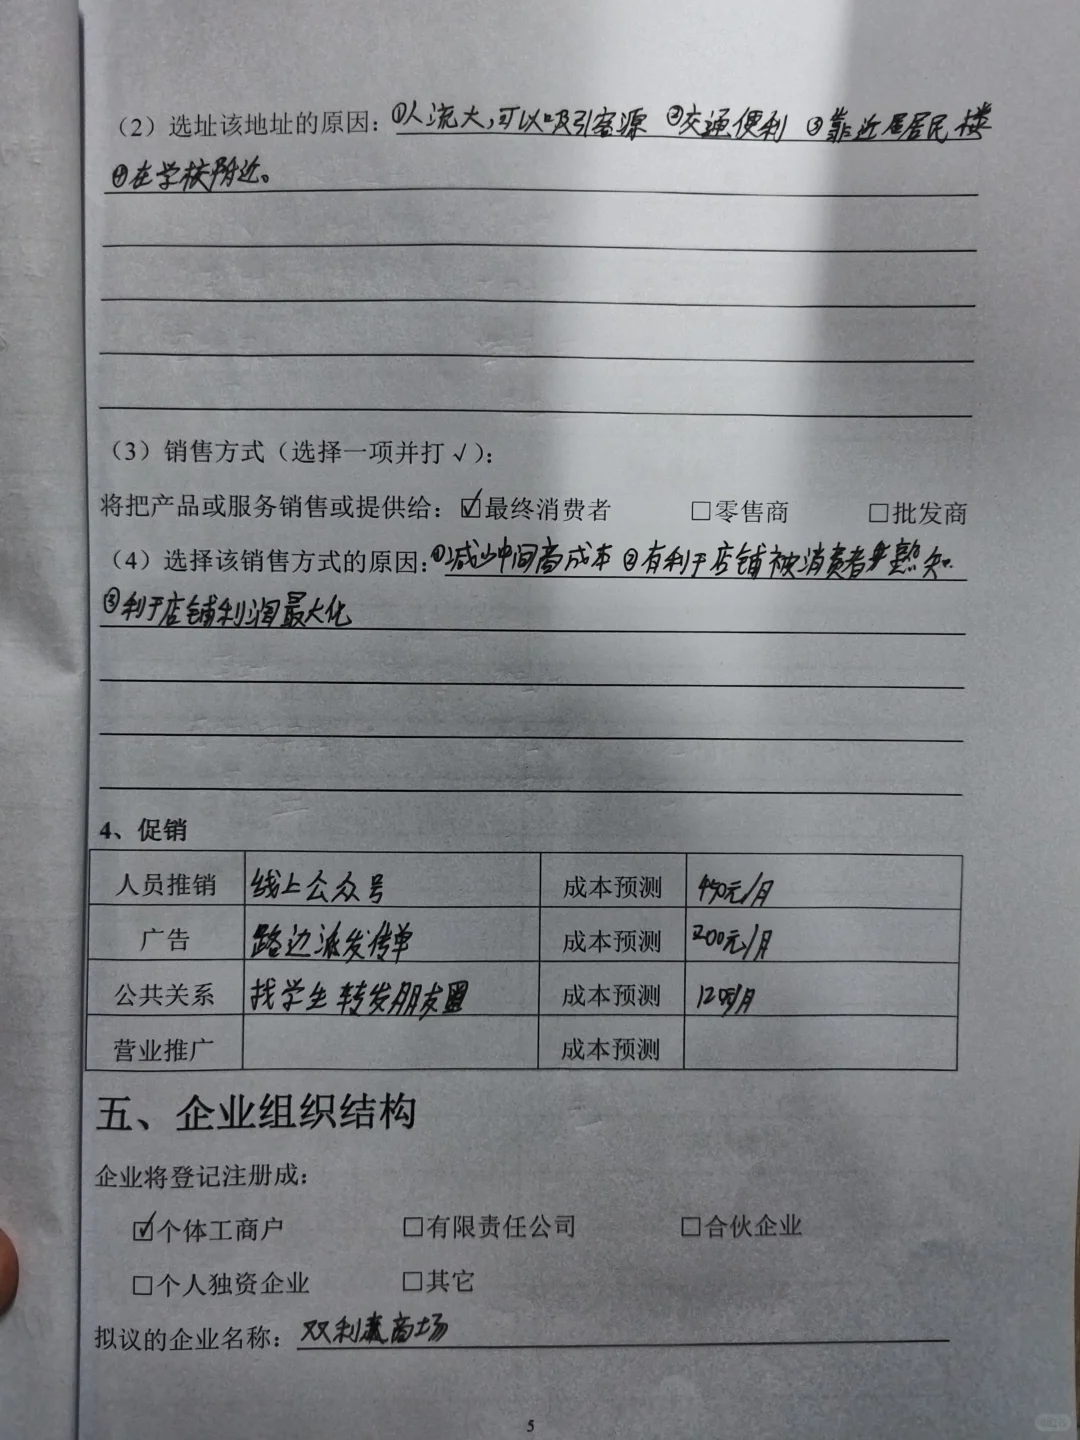 （2）选址该地址的原因：①人流大，可以吸引客源 ②交通便利 ③靠近居民楼
④在学校附近。
（3）销售方式（选择一项并打 √）：
将把产品或服务销售或提供给：☑最终消费者 □零售商 □批发商
（4）选择该销售方式的原因：①减少中间商成本 ②有利于店铺被消费者熟知.
③利于店铺利润最大化
4、促销
人员推销 线上公众号 成本预测 元/月
广告 路边派发传单 成本预测 200元/月
公共关系 找学生转发朋友圈 成本预测 /月
营业推广 成本预测
五、企业组织结构
企业将登记注册成：
☑个体工商户 □有限责任公司 □合伙企业
□个人独资企业 □其它
拟议的企业名称：双利 商场
5